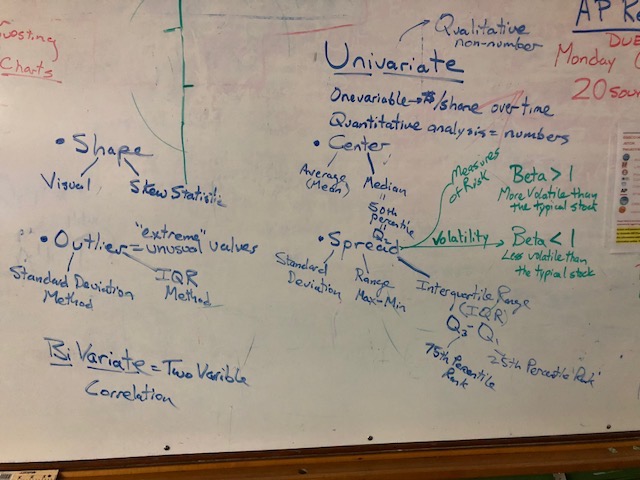 Charts
AP
DUE
Monday
20
Qualitative
non-number
Univariate
One variable → $/share over time
Quantitative analysis = numbers
• Shape
Visual
Skew Statistic
• Outlier = "extreme" unusual values
Standard Deviation
Method
IQR
Method
Bi Variate = Two Varible
Correlation
• Center
Average
(Mean)
Median
=
50th
percentile
=
Q2
• Spread
Standard
Deviation
Range
Max-Min
Interquartile Range
(IQR)
Q3 - Q1
75th Percentile
Rank
25th Percentile Rank
Measures
of Risk
Volatility
Beta > 1
More Volatile than
the typical stock
Beta < 1
Less volatile than
the typical stock